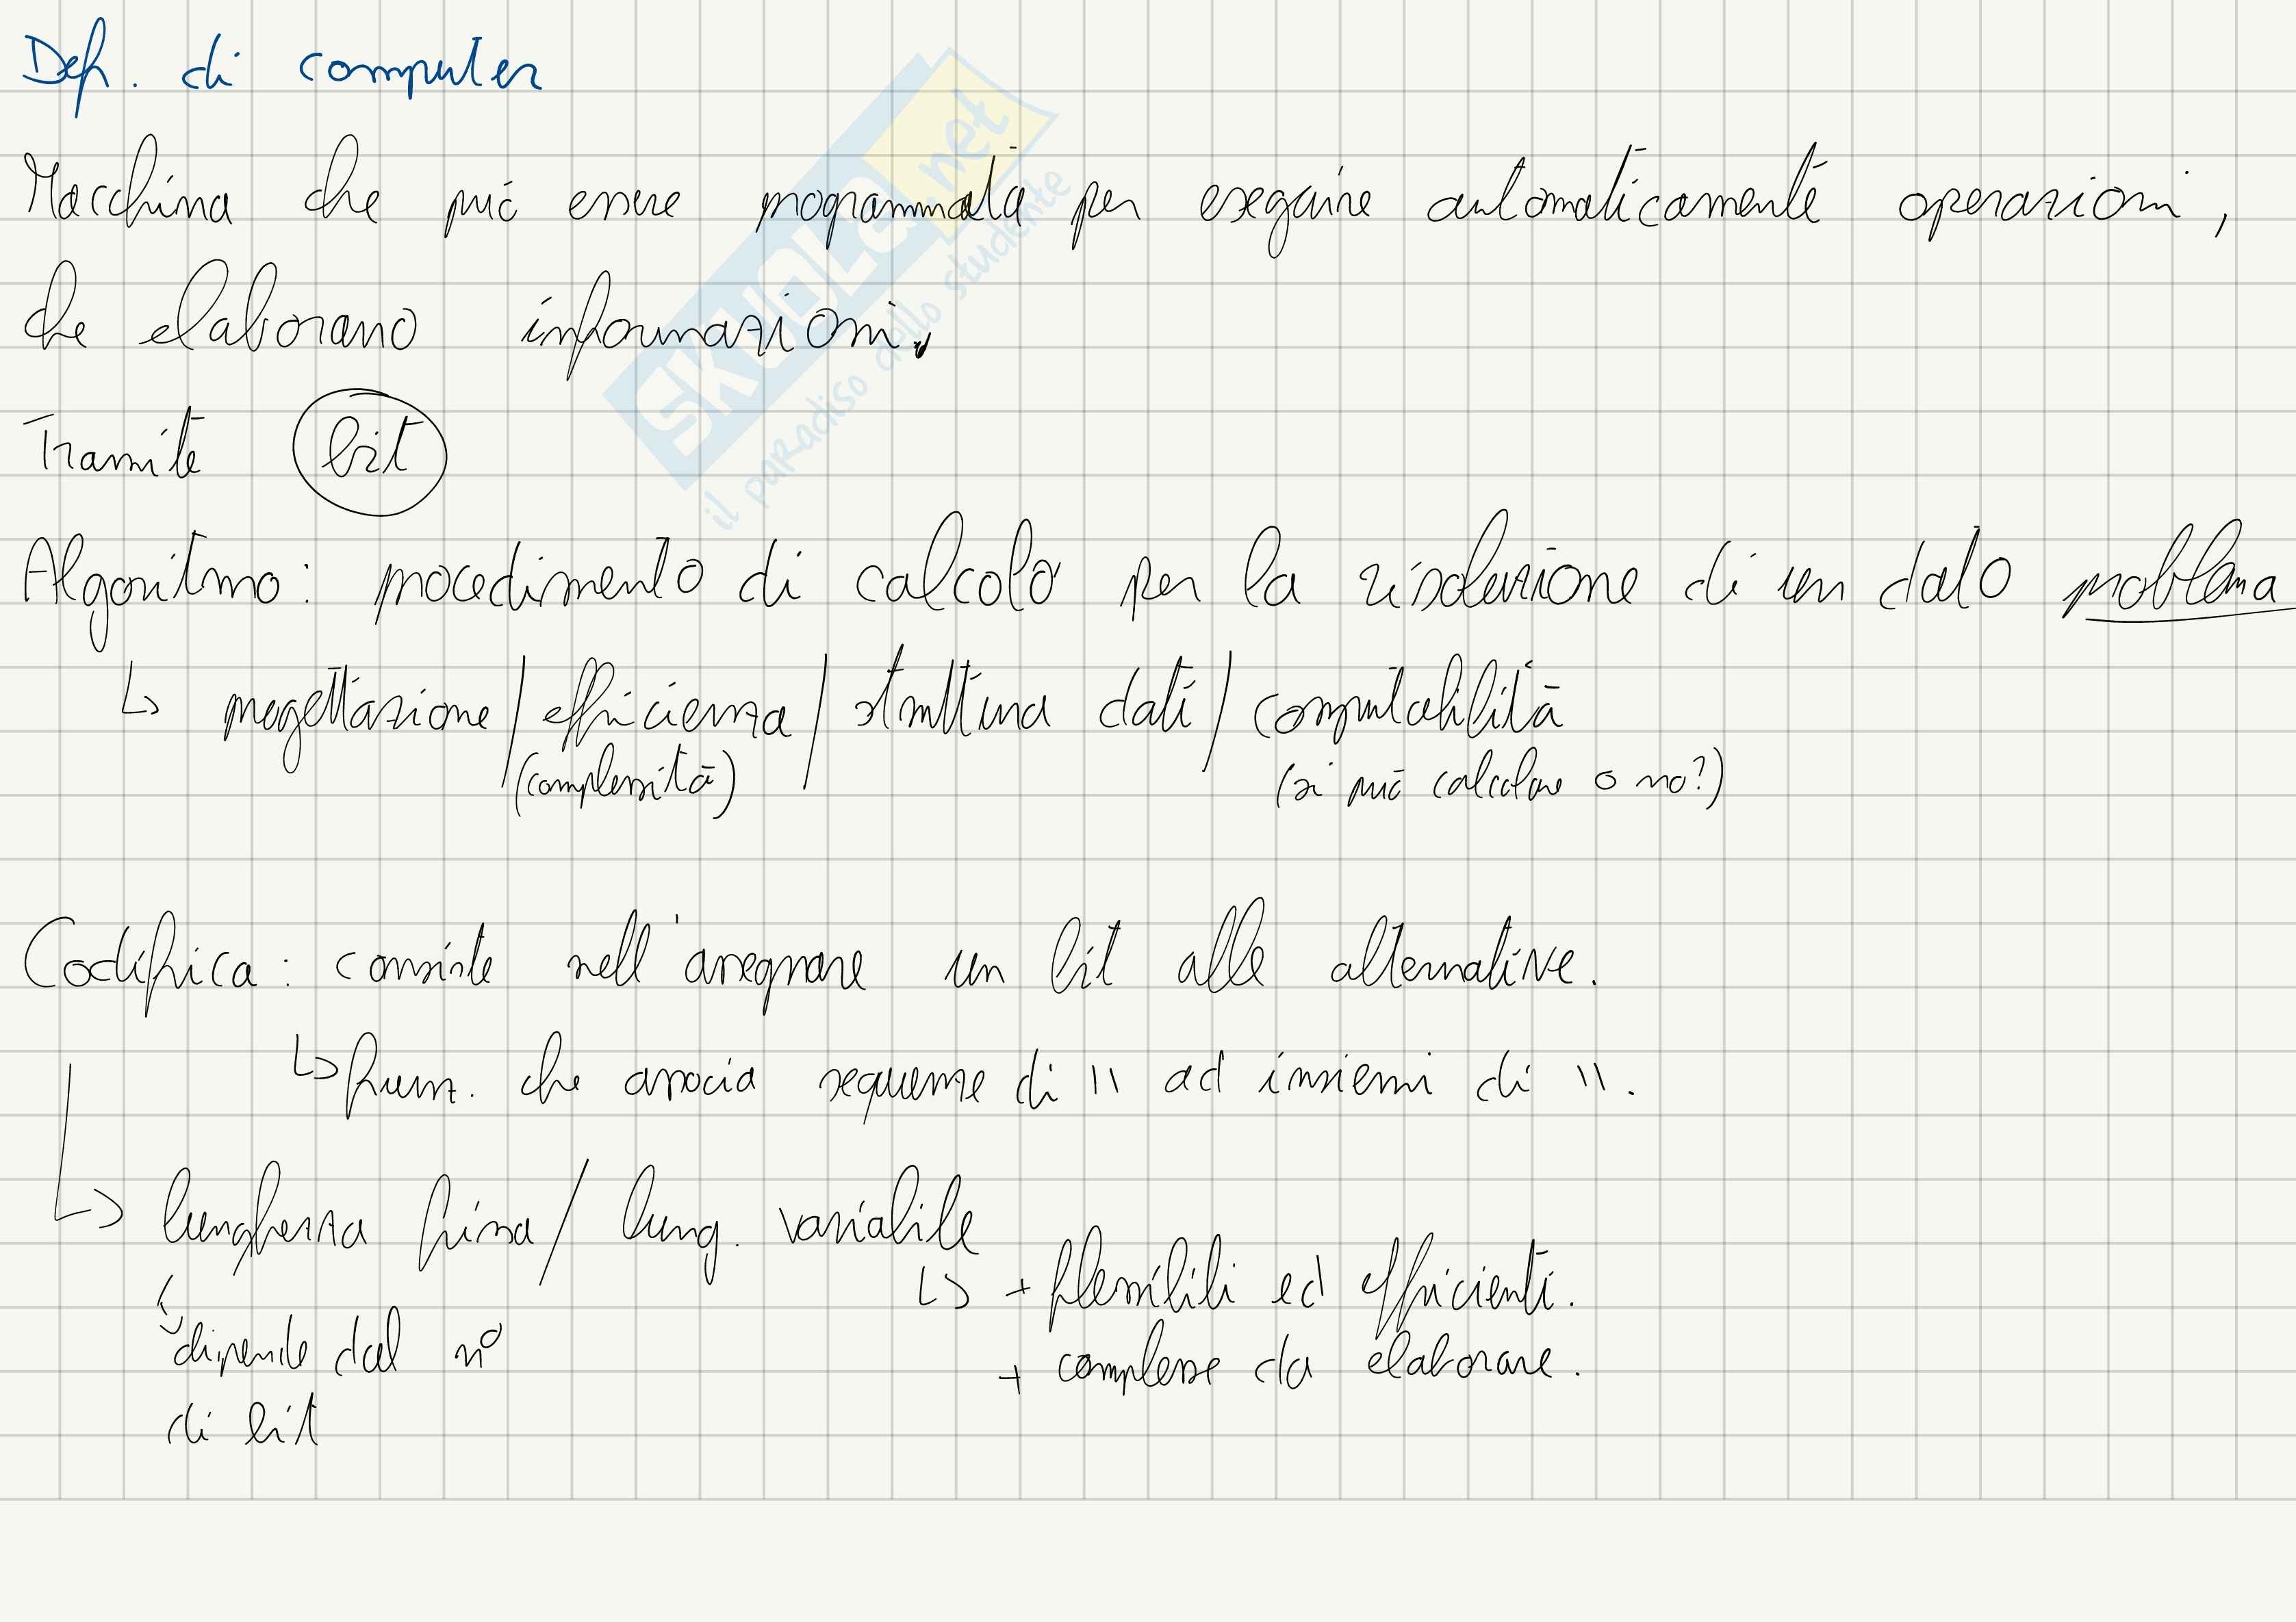 Def. di computer
Macchina che può essere programmata per eseguire automaticamente operazioni,
che elaborano informazioni.
Tramite bit
Algoritmo: procedimento di calcolo per la risoluzione di un dato problema
↳ progettazione / efficienza / struttura dati / computabilità
(complessità) (si può calcolare o no?)
Codifica: consiste nell'assegnare un bit alle alternative.
↳ funz. che associa sequenze di " ad insiemi di ".
↳ lunghezza fissa / lung. variabile
↳ + flessibili ed efficienti.
dipende dal n°
+ complesse da elaborare.
di bit
SKUOLA.net
il paradiso dello studente